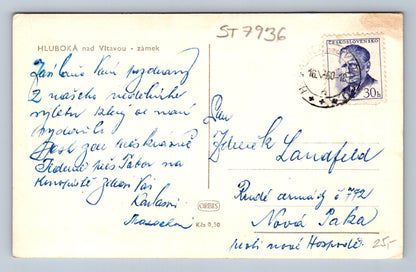 ST 7936
HLUBOKÁ nad Vltavou - zámek
ČESKOSLOVENSKO
30h
Zasíláme Vám pozdravy
z našeho nedělního
výletu který se nám
vydařil.
zde
Jedeme přes Tábor na
Konopiště Zdraví Vás
Pan
Zdeněk Landfeld
Rudé armády č 792
Nová Paka
proti nové Hospodě
ORBIS
Kčs 0,30
25,-